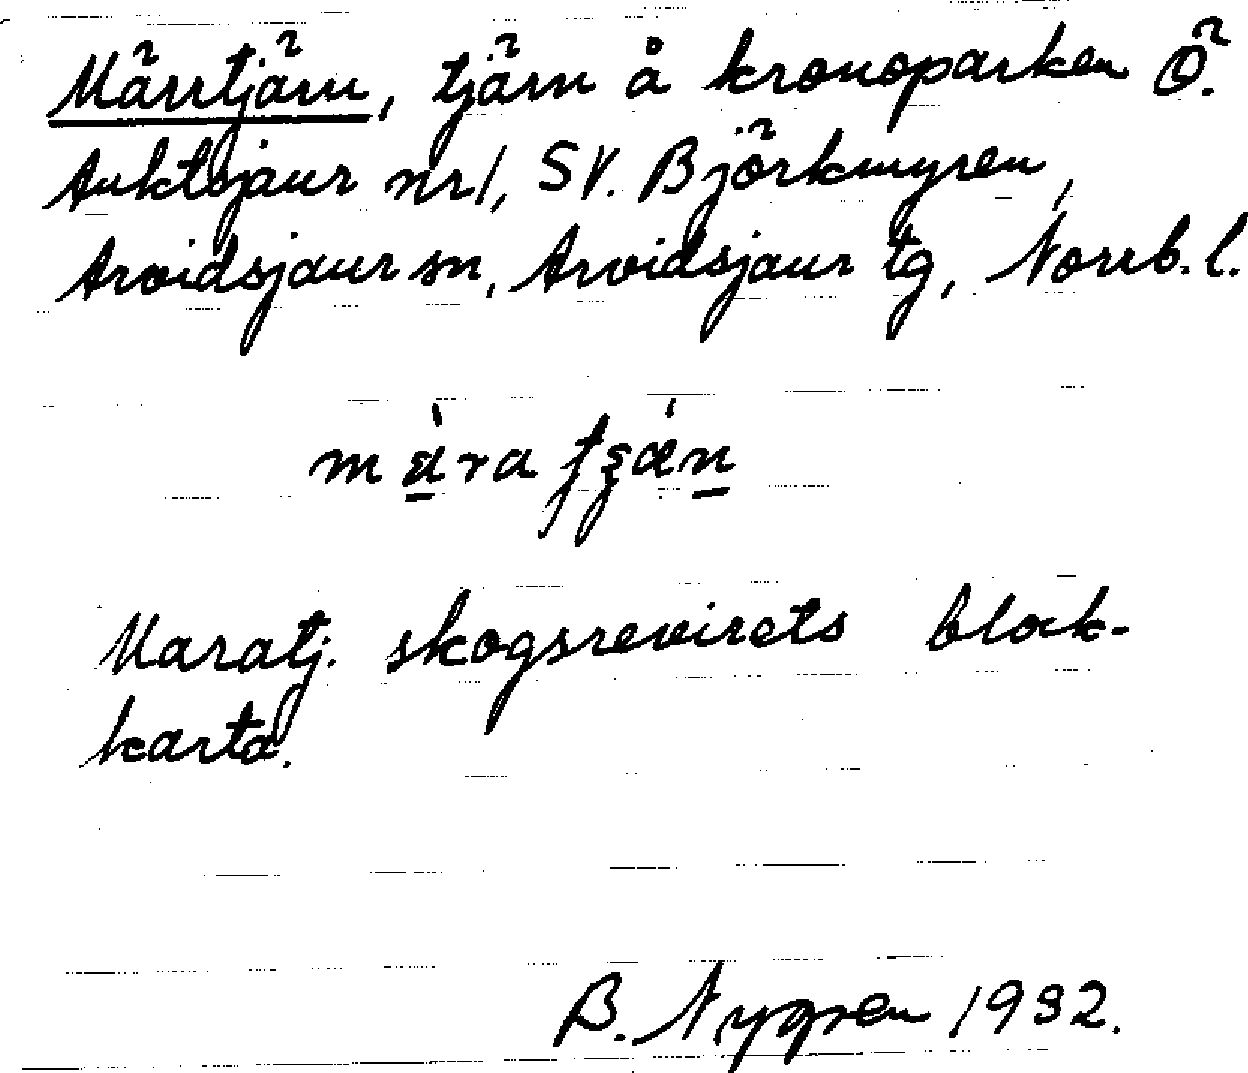 Märrtjärn, tjärn å kronoparken Ö.
Auktsjaur nr 1, SV. Björkmyren,
Arvidsjaur sn, Arvidsjaur tg, Norrb. l.
Maratj. skogsrevirets block-
karta.
B. Nygren 1932.